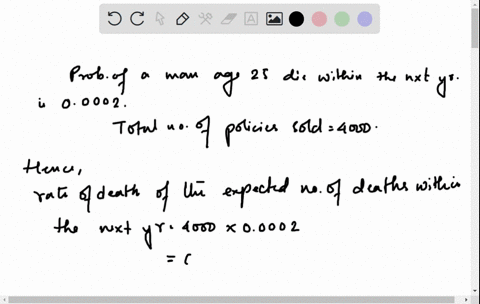 Prob. of a man age 25 die within the nxt yr.
is 0.0002.
Total no. of policies sold = 4000.
Hence,
rate of death of the expected no. of deaths within
the nxt yr = 4000 x 0.0002
= 0